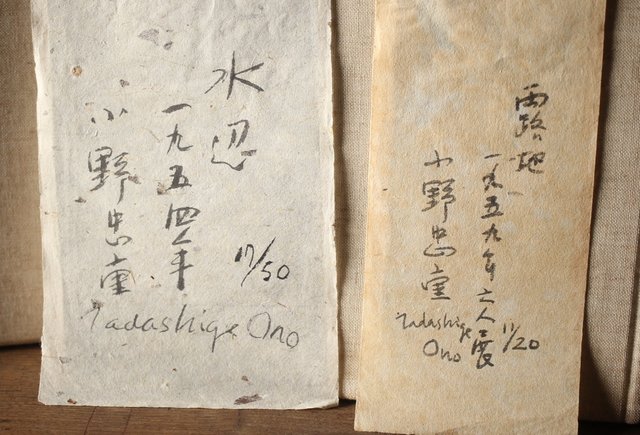 水辺
一九五四年
小野忠重
17/50
Tadashige Ono
雨路地
一九五九年 六人展
小野忠重
11/20
Tadashige
Ono